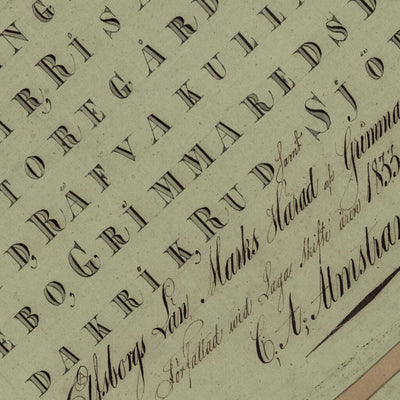 NG
R, RIS A
TOREGÅRD
D, RÅFVAKULL
EBO, GRIMMAREDS D
DAKRIK, RUD samt SJÖ
Elfsborgs Län Marks Härad af Grimma
författad wid Laga skifte åren 1833
C, A, Almstran